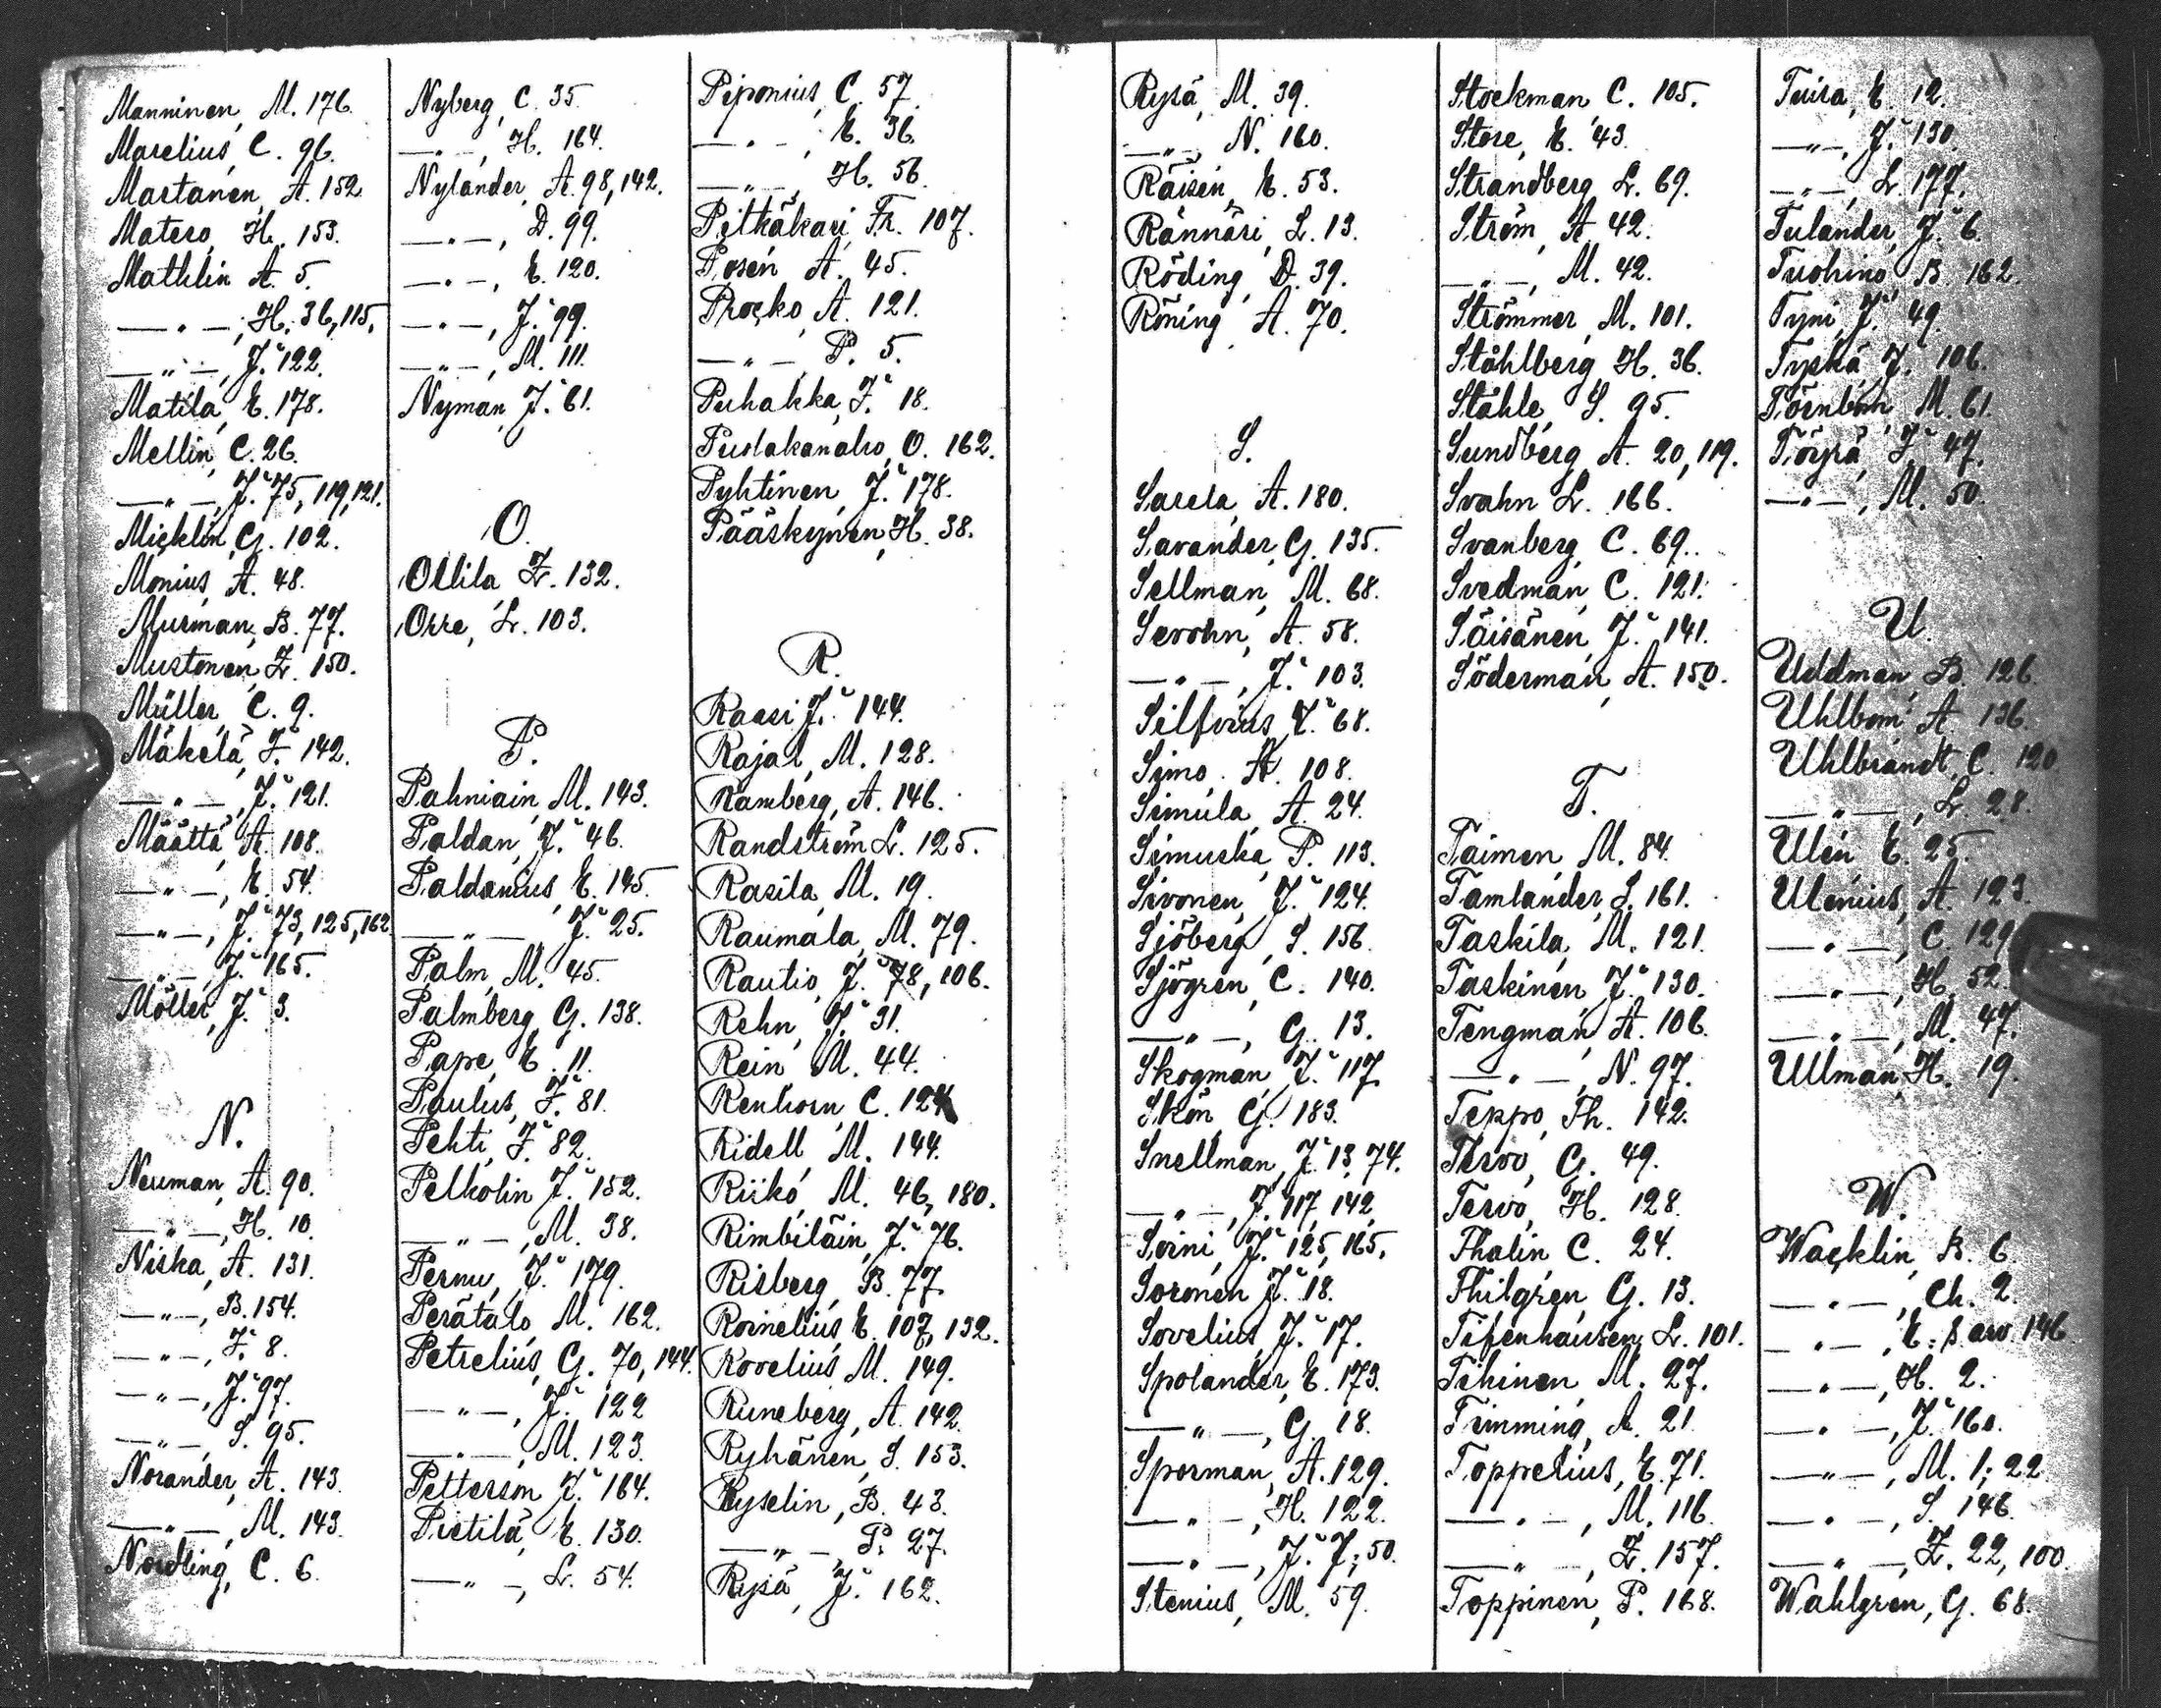 Manninen, M. 176.
Marelius, C. 96.
Martanen, A. 152
Matero, H. 153.
Mathlin A. 5.
—„—, H. 36, 115,
—„—, J. 122.
Matila, E. 178.
Mellin, C. 26.
—„—, J. 75, 119, 121.
Micklin, G. 102.
Monius, A. 48.
Murman, B. 77.
Mustonen, Z. 150.
Müller, C. 9.
Mäkelä, J. 142.
—„—, J. 121.
Määttä, A. 108.
—„—, E. 54.
—„—, J. 73, 125, 162
—„—, J. 165.
Möller, J. 3.
N.
Neuman, A. 90.
—„—, H. 10.
Niska, A. 131.
—„—, B. 154.
—„—, J. 8.
—„—, J. 97.
—„—, S. 95.
Norander, A. 143.
—„—, M. 143.
Nordling, C. 6.
Nyberg, C. 35.
—„—, H. 164.
Nylander, A. 98, 142.
—„—, D. 99.
—„—, E. 120.
—„—, J. 99.
—„—, M. 111.
Nyman, J. 61.
O.
Ollila Z. 132.
Orre, L. 103.
P.
Pahniain, M. 143.
Paldan, J. 46.
Paldanius, E. 145.
—„— J. 25.
Palm, M. 45.
Palmberg, G. 138.
Pape, E. 11.
Paulus, J. 81.
Pehti, J. 82.
Pelkolin J. 152.
—„—, M. 38.
Pernu, J. 179.
Perätalo M. 162.
Petrelius, G. 70, 144.
—„—, J. 122
—„—, M. 123.
Petterson J. 164.
Pietilä, E. 130.
—„—, L. 54.
Piponius, C. 57.
—„—, E. 36.
—„—, H. 56.
Pitkäkari, Fr. 107.
Posén A. 45.
Procko, A. 121.
—„— P. 5.
Puhakka, J. 18.
Puolakanaho, O. 162.
Pyhtinen, J. 178.
Pääskynen, H. 38.
R.
Raasi J. 144.
Rajal, M. 128.
Ramberg, A. 146.
Randström L. 125.
Rasila, M. 19.
Raumala, M. 79.
Rautio, J. 78, 106.
Rehn, J. 31.
Rein M. 44.
Renhorn C. 124
Ridell M. 144.
Riikó, M. 46, 180.
Rimbiläin, J. 76.
Risberg, B. 77.
Roinelius E. 107, 132.
Rovelius M. 149.
Runeberg, A. 142.
Ryhänen, S. 153.
Ryselin, B. 43.
—„—, P. 27.
Rysä, J. 162.
Rysä, M. 39.
—„—, N. 160.
Räisén, E. 53.
Rännäri, L. 13.
Röding, D. 39.
Röning, A. 70.
S.
Sarela, A. 180.
Savander, G. 135.
Sellman, M. 68.
Serohn, A. 58.
—„—, J. 103.
Silfvius J. 68.
Simo. A. 108.
Simula, A. 24.
Simuska, P. 113.
Sivonen, J. 124.
Sjöberg, S. 156.
Sjögren, C. 140.
—„—, G. 13.
Skogman, J. 117.
Skön, G. 183.
Snellman, J. 13, 74.
—„—, J. 117, 142,
Soini, J. 125, 165,
Soronen J. 18.
Sovelius, J. 17.
Spolander, E. 173.
—„—, G. 18.
Sporman, A. 129.
—„—, H. 122.
—„—, J. 7; 50.
Stenius, M. 59.
Stockman C. 105.
Store, E. 43.
Strandberg, L. 69.
Ström, A. 42.
—„—, M. 42.
Strömmer, M. 101.
Ståhlberg, H. 36.
Ståhle, S. 95.
Sundberg, A. 20, 119.
Svahn L. 166.
Svanberg, C. 69.
Svedman, C. 121.
Säisänen, J. 141.
Söderman, A. 150.
T.
Taimen, M. 84.
Tamlander, S. 161.
Taskila, M. 121.
Taskinen J. 130.
Tengman A. 106.
—„—, N. 97.
Teppo, Th. 142.
Tervo, G. 49.
Tervo, H. 128.
Thalin, C. 24.
Thilgren, G. 13.
Tifenhausen, L. 101.
Tihinen, M. 27.
Timming, A. 21.
Toppelius, E. 71.
—„—, M. 116.
—„—, Z. 157.
Toppinen, P. 168.
Tuira, E. 12.
—„—, J. 130.
—„—, L. 177.
Tulander, J. 6.
Tuohino, B. 162.
Tyni, J. 49.
Tyskä, J. 106.
Törnbom M. 61.
Töyrä, J. 47.
—„—, M. 50.
U.
Uddman, B. 126.
Uhlbom, A. 136.
Uhlbrandt, C. 120
—„—, L. 28.
Ulén, E. 25.
Ulenius, A. 123.
—„—, C. 129
—„—, H. 52.
—„—, M. 47.
Ullman, H. 19.
W.
Wacklin, B. 6.
—„—, Ch. 2.
—„—, E. 146
—„—, H. 2.
—„—, J. 160.
—„—, M. 1; 22.
—„—, S. 146.
—„—, Z. 22, 100.
Wahlgren, G. 68.